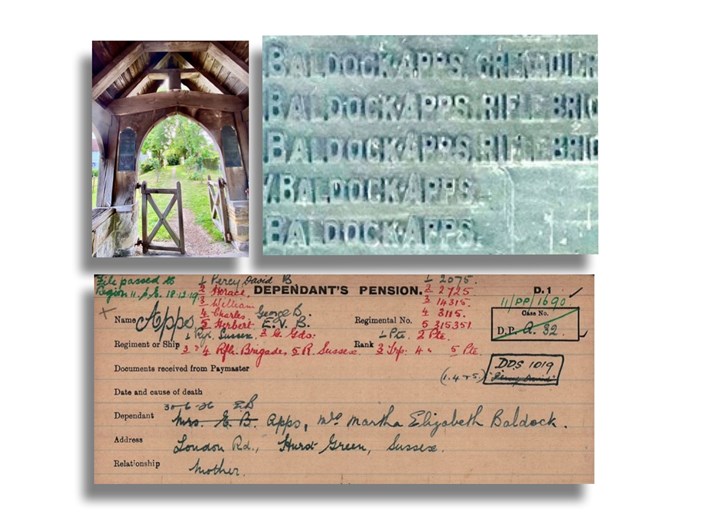 BALDOCK APPS. GRENADIER
BALDOCK APPS. RIFLE BRIG
BALDOCK APPS. RIFLE BRIG
V. BALDOCK APPS.
BALDOCK APPS.
File passed to
Region 11. 18.12.19
1/ Percy David B
2 Horace.
3 William
4 Charles. George B.
5 Herbert. E. V. B.
DEPENDANT'S PENSION.
D. 1
1/ 2075.
2 2725
3 14315.
4 3115.
5 315351.
11/DP/1690
Case No.
D.P. a. 32.
Name Apps
Regimental No.
1/ Roy. Sussex. 2 G. Gds:
1/ Pte. 2 Pte.
Regiment or Ship 3 & 4 Rfle. Brigade, 5 R. Sussex.
Rank 3 Trp. 4 " 5 Pte.
Documents received from Paymaster
DDS 1019
(1.4+5)
Date and cause of death
30-6-26 E.B
Dependant Mrs. E. B. Apps, Mrs Martha Elizabeth Baldock.
Address London Rd., Hurst Green, Sussex.
Relationship Mother.